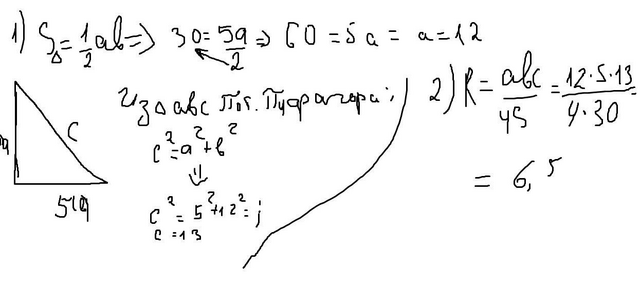 1) S△ = 1/2 ab => 30 = 5a/2 => 60 = 5a = a = 12
Из △ abc По т. Пифагора;
c² = a² + b²
⇓
c² = 5² + 12² = ;
c = 13
c
2) R = abc/4S = 12·5·13/4·30 =
= 6,5